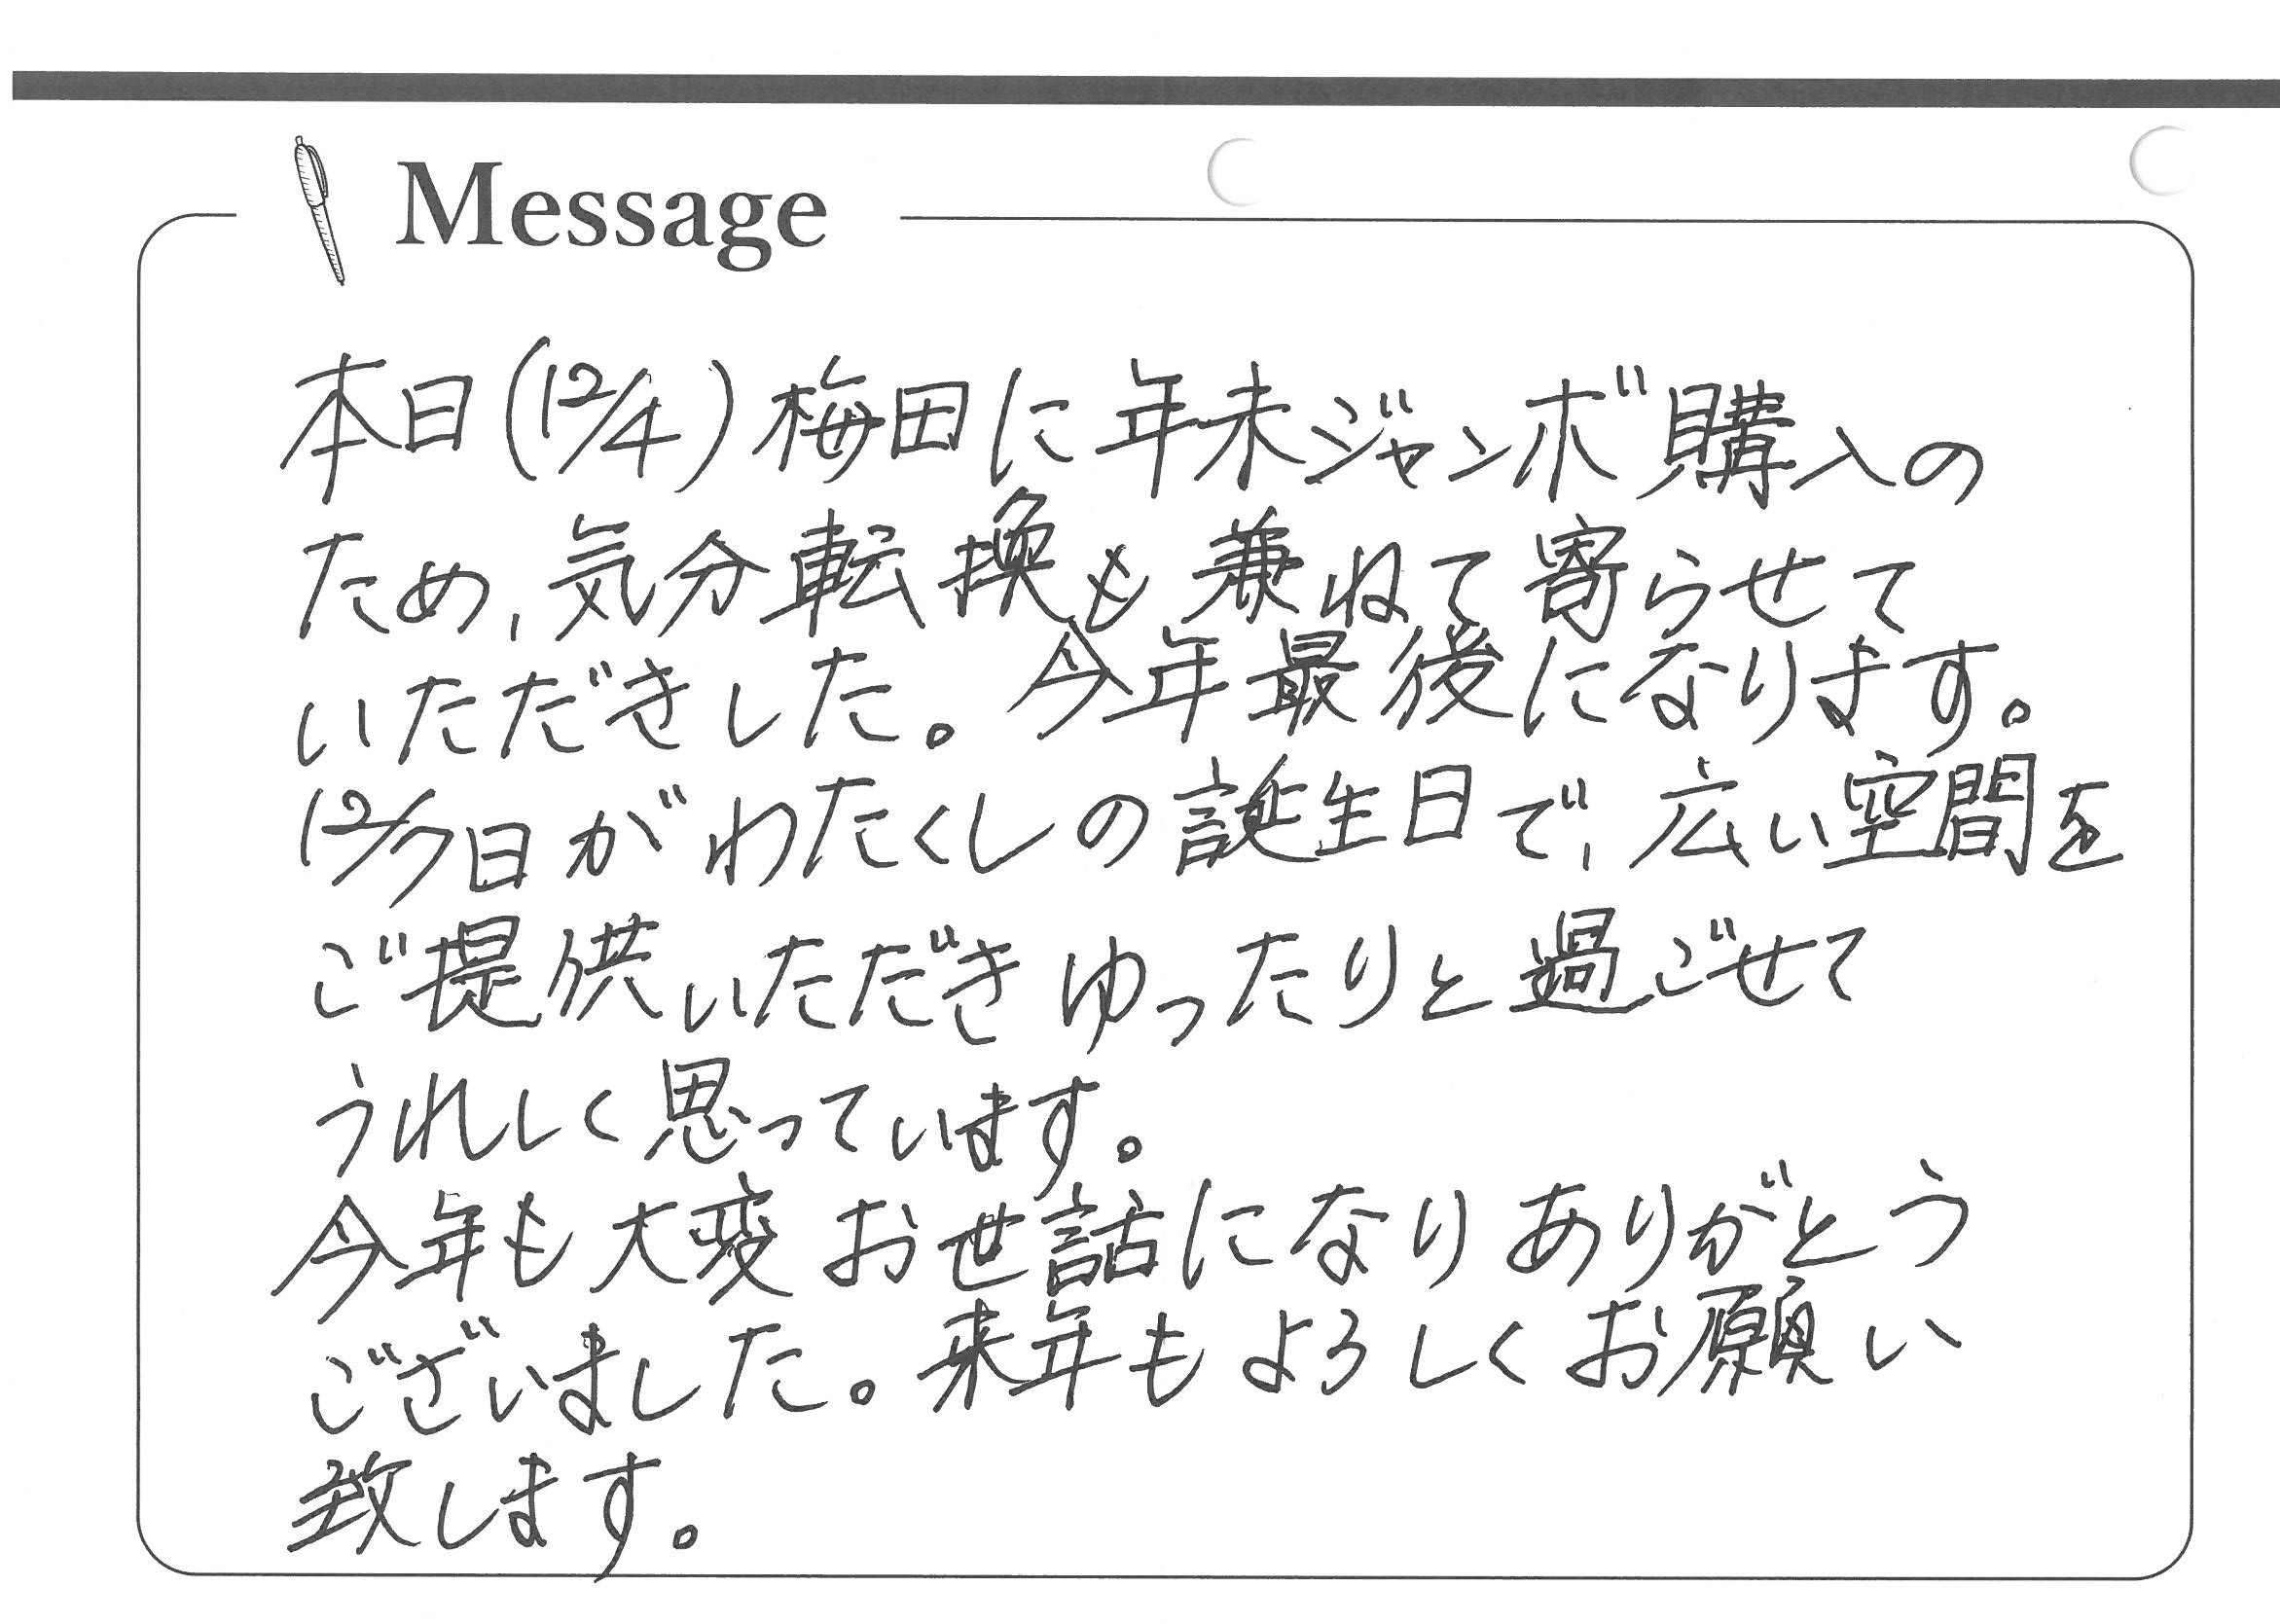 Message
本日(12/4)梅田に年末ジャンボ購入の
ため、気分転換も兼ねて寄らせて
いただきした。今年最後になります。
12/7日がわたくしの誕生日で、広い空間を
ご提供いただきゆったりと過ごせて
うれしく思っています。
今年も大変お世話になりありがとう
ございました。来年もよろしくお願い
致します。